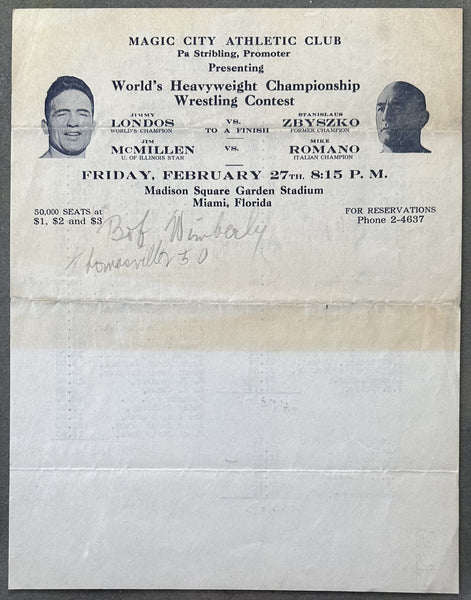 MAGIC CITY ATHLETIC CLUB
Pa Stribling, Promoter
Presenting
World's Heavyweight Championship
Wrestling Contest
JIMMY LONDOS WORLD'S CHAMPION VS. TO A FINISH STANISLAUS ZBYSZKO FORMER CHAMPION
JIM McMILLEN U. OF ILLINOIS STAR VS. MIKE ROMANO ITALIAN CHAMPION
FRIDAY, FEBRUARY 27TH. 8:15 P. M.
Madison Square Garden Stadium
Miami, Florida
50,000 SEATS at
$1, $2 and $3
FOR RESERVATIONS
Phone 2-4637
Bob Wimberly
Thomasville 50